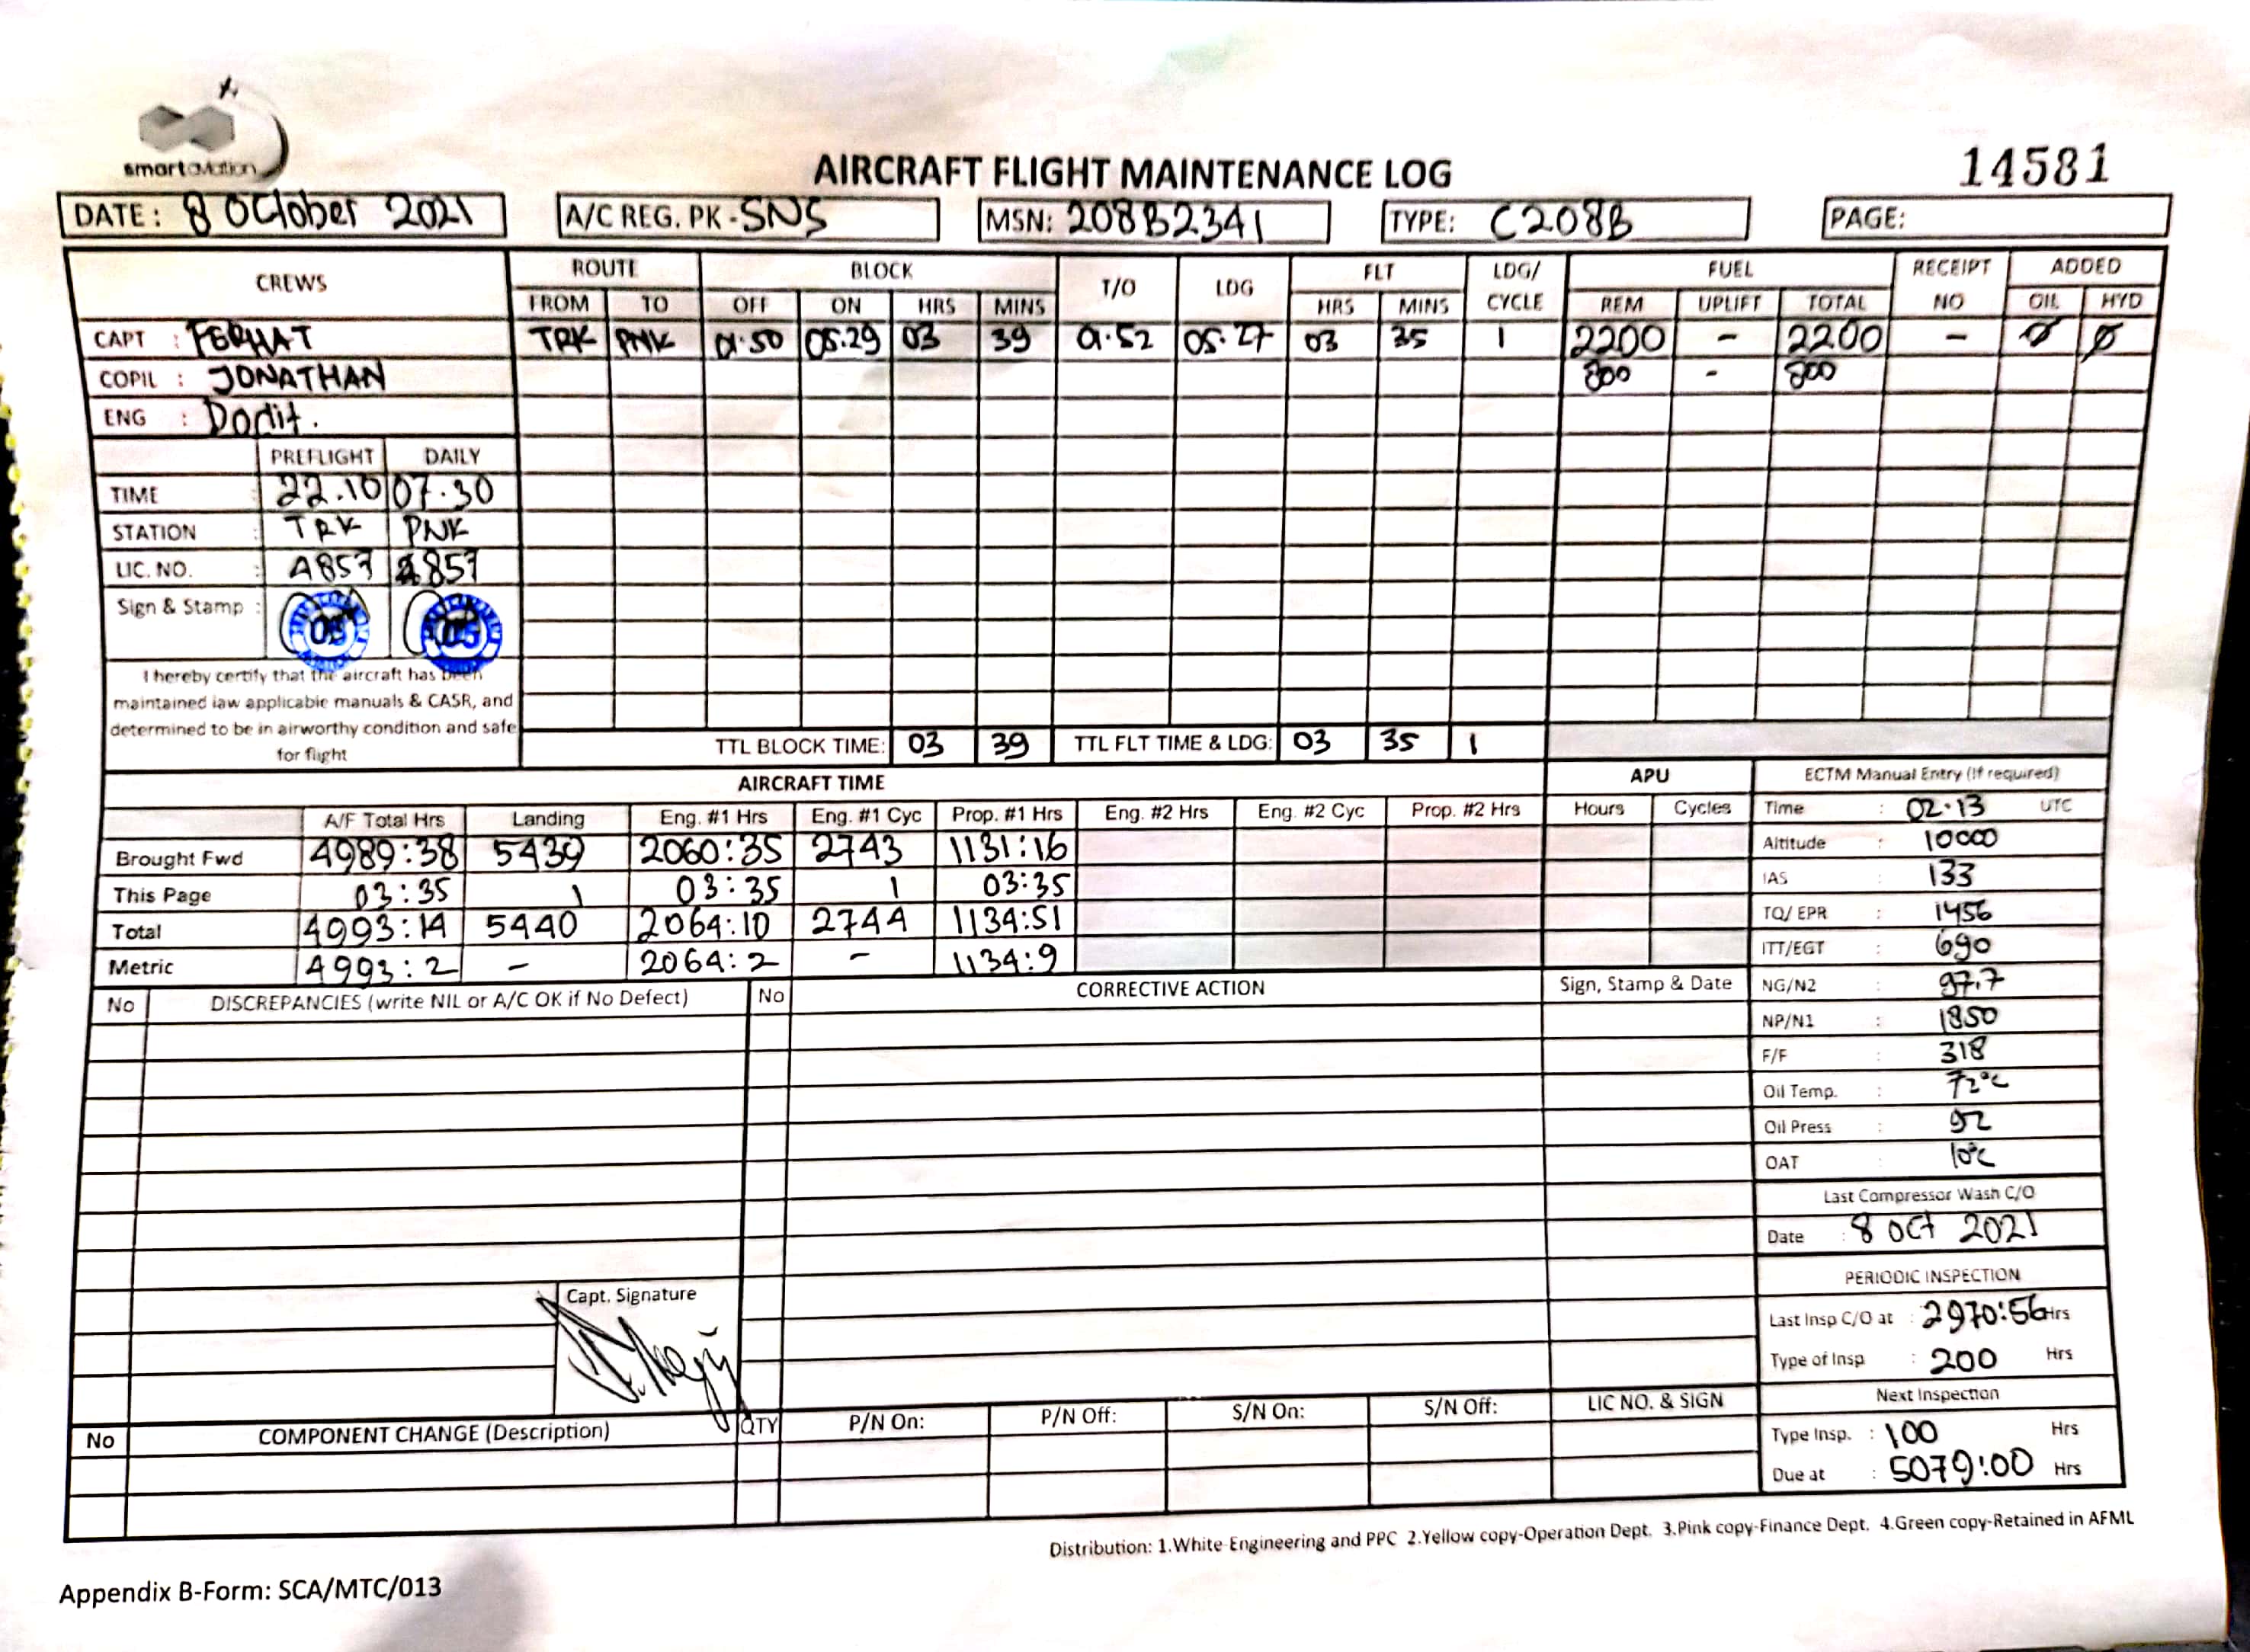 smartaviation
AIRCRAFT FLIGHT MAINTENANCE LOG
14581
DATE: 8 October 2021 A/C REG. PK-SNS MSN: 208B2341 TYPE: C208B PAGE:
CREWS ROUTE BLOCK T/O LDG FLT LDG/ CYCLE FUEL RECEIPT NO ADDED
FROM TO OFF ON HRS MINS HRS MINS REM UPLIFT TOTAL OIL HYD
CAPT : FERHAT TRK PNK 01.50 05.29 03 39 01.52 05.27 03 35 1 2200 - 2200 - Ø Ø
COPIL : JONATHAN 800 - 800
ENG : Dodit.
PREFLIGHT DAILY
TIME : 22.10 07.30
STATION : TRK PNK
LIC. NO. : 4857 4857
Sign & Stamp :
I hereby certify that the aircraft has been
maintained iaw applicable manuals & CASR, and
determined to be in airworthy condition and safe
for flight
TTL BLOCK TIME: 03 39 TTL FLT TIME & LDG: 03 35 1
AIRCRAFT TIME APU ECTM Manual Entry (If required)
A/F Total Hrs Landing Eng. #1 Hrs Eng. #1 Cyc Prop. #1 Hrs Eng. #2 Hrs Eng. #2 Cyc Prop. #2 Hrs Hours Cycles Time : 02.13 UTC
Brought Fwd 4989:38 5439 2060:35 2743 1131:16 Altitude : 10000
This Page 03:35 1 03:35 1 03:35 IAS : 133
Total 4993:14 5440 2064:10 2744 1134:51 TQ/ EPR : 1456
Metric 4993:2 - 2064:2 - 1134:9 ITT/EGT : 690
No DISCREPANCIES (write NIL or A/C OK if No Defect) No CORRECTIVE ACTION Sign, Stamp & Date NG/N2 : 97.7
NP/N1 : 1850
F/F : 318
Oil Temp. : 72°C
Oil Press : 92
OAT : 10°C
Last Compressor Wash C/O
Date : 8 OCT 2021
PERIODIC INSPECTION
Capt. Signature
Last Insp C/O at : 2970:56 Hrs
Type of Insp : 200 Hrs
Next Inspection
No COMPONENT CHANGE (Description) QTY P/N On: P/N Off: S/N On: S/N Off: LIC NO. & SIGN
Type Insp. : 100 Hrs
Due at : 5079:00 Hrs
Distribution: 1.White-Engineering and PPC 2.Yellow copy-Operation Dept. 3.Pink copy-Finance Dept. 4.Green copy-Retained in AFML
Appendix B-Form: SCA/MTC/013